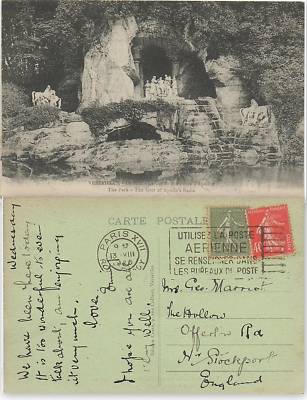 VERSAILLES
The Park - The Grot of Apollo's Baths
CARTE POSTALE
PARIS XVII
13 VIII
UTILISEZ LA POSTE
AERIENNE
SE RENSEIGNER DANS
LES BUREAUX DE POSTE
Wednesday
We have been here today
It is too wonderful to even
talk about, am enjoying
it very much.
Love
I hope you are
Well.
Mrs. Geo. Marriot
The Hollow
Offerton Rd
Nr Stockport
England